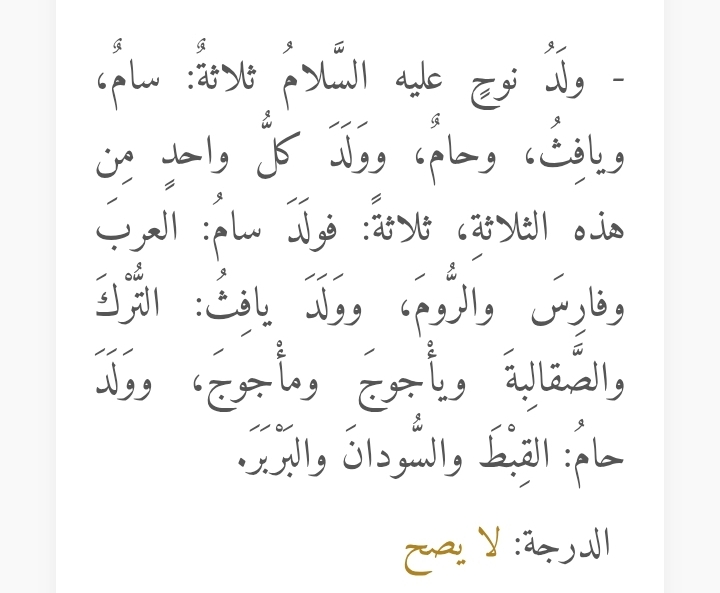 - ولَدُ نوحٍ عليه السَّلامُ ثلاثةٌ: سامٌ،
ويافِثُ، وحامٌ، ووَلَدَ كلُّ واحدٍ مِن
هذه الثلاثةِ، ثلاثةً: فولَدَ سامُ: العربَ
وفارِسَ والرُّومَ، ووَلَدَ يافِثُ: التُّرْكَ
والصَّقالِبةَ ويأْجوجَ ومأْجوجَ، ووَلَدَ
حامُ: القِبْطَ والسُّودانَ والبَرْبَرَ.
الدرجة: لا يصح